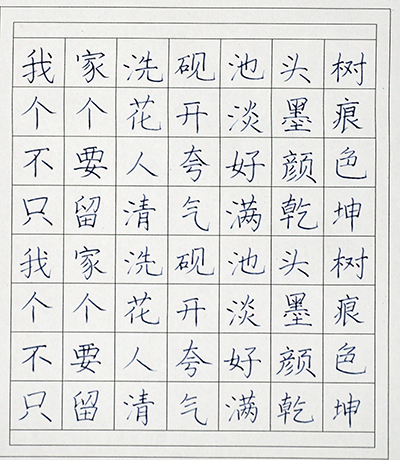 我家洗砚池头树
个个花开淡墨痕
不要人夸好颜色
只留清气满乾坤
我家洗砚池头树
个个花开淡墨痕
不要人夸好颜色
只留清气满乾坤